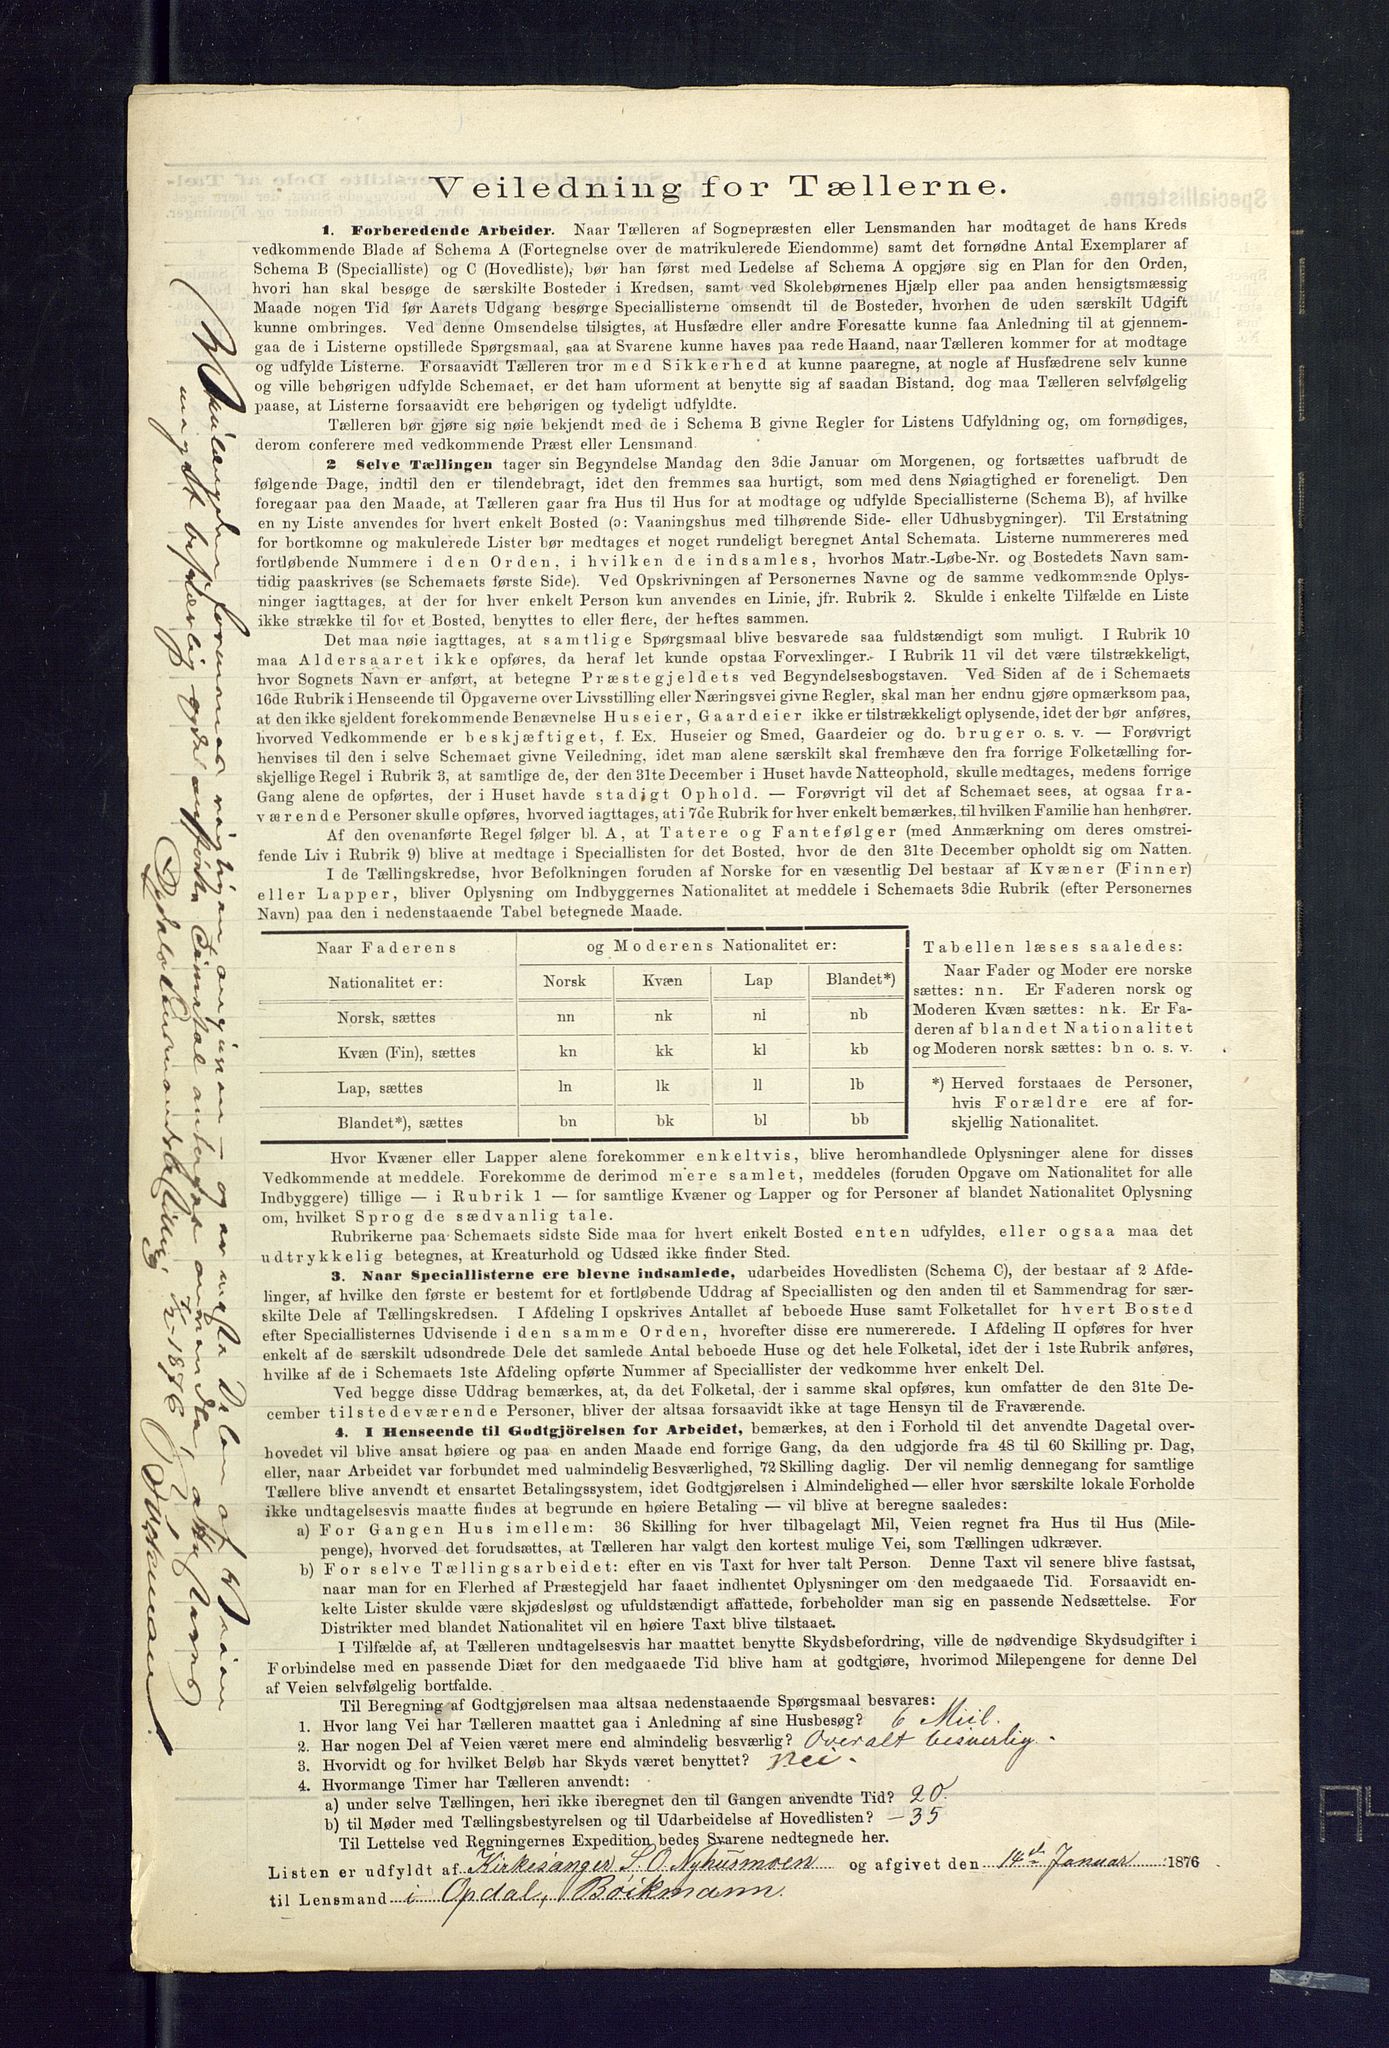 Veiledning for Tællerne.
1. Forberedende Arbeider. Naar Tælleren af Sognepræsten eller Lensmanden har modtaget de hans Kreds
vedkommende Blade af Schema A (Fortegnelse over de matrikulerede Eiendomme) samt det fornødne Antal Exemplarer af
Schema B (Specialliste) og C (Hovedliste), bør han først med Ledelse af Schema A opgjøre sig en Plan for den Orden,
hvori han skal besøge de særskilte Bosteder i Kredsen, samt ved Skolebørnenes Hjælp eller paa anden hensigtsmæssig
Maade nogen Tid før Aarets Udgang besørge Speciallisterne omsendt til de Bosteder, hvorhen de uden særskilt Udgift
kunne ombringes. Ved denne Omsendelse tilsigtes, at Husfædre eller andre Foresatte kunne faa Anledning til at gjennem-
gaa de i Listerne opstillede Spørgsmaal, saa at Svarene kunne haves paa rede Haand, naar Tælleren kommer for at modtage
og udfylde Listerne. Forsaavidt Tælleren tror med Sikkerhed at kunne paaregne, at nogle af Husfædrene selv kunne
og ville behørigen udfylde Schemaet, er det ham uforment at benytte sig af saadan Bistand, dog maa Tælleren selvfølgelig
paase, at Listerne forsaavidt ere behørigen og tydeligt udfyldte.
Tælleren bør gjøre sig nøie bekjendt med de i Schema B givne Regler for Listens Udfyldning og, om fornødiges,
derom conferere med vedkommende Præst eller Lensmand.
2 Selve Tællingen tager sin Begyndelse Mandag den 3die Januar om Morgenen, og fortsættes uafbrudt de
følgende Dage, indtil den er tilendebragt, idet den fremmes saa hurtigt, som med dens Nøiagtighed er foreneligt. Den
foregaar paa den Maade, at Tælleren gaar fra Hus til Hus for at modtage og udfylde Speciallisterne (Schema B), af hvilke
en ny Liste anvendes for hvert enkelt Bosted (ɔ: Vaaningshus med tilhørende Side- eller Udhusbygninger). Til Erstatning
for bortkomne og makulerede Lister bør medtages et noget rundeligt beregnet Antal Schemata. Listerne nummereres med
fortløbende Nummere i den Orden, i hvilken de indsamles, hvorhos Matr.-Løbe-Nr. og Bostedets Navn sam-
tidig paaskrives (se Schemaets første Side). Ved Opskrivningen af Personernes Navne og de samme vedkommende Oplys-
ninger iagttages, at der for hver enkelt Person kun anvendes en Linie, jfr. Rubrik 2. Skulde i enkelte Tilfælde en Liste
ikke strække til for et Bosted, benyttes to eller flere, der heftes sammen.
Det maa nøie iagttages, at samtlige Spørgsmaal blive besvarede saa fuldstændigt som muligt. I Rubrik 10
maa Aldersaaret ikke opføres, da heraf let kunde opstaa Forvexlinger. I Rubrik 11 vil det være tilstrækkeligt,
hvor Sognets Navn er anført, at betegne Præstegjeldets ved Begyndelsesbogstaven. Ved Siden af de i Schemaets
16de Rubrik i Henseende til Opgaverne over Livsstilling eller Næringsvei givne Regler, skal man her endnu gjøre opmærksom paa,
at den ikke sjeldent forekommende Benævnelse Huseier, Gaardeier ikke er tilstrækkeligt oplysende, idet der bør anføres,
hvorved Vedkommende er beskjæftiget, f. Ex. Huseier og Smed, Gaardeier og do. bruger o. s. v. — Forøvrigt
henvises til den i selve Schemaet givne Veiledning, idet man alene særskilt skal fremhæve den fra forrige Folketælling for-
skjellige Regel i Rubrik 3, at samtlige de, der den 31te December i Huset havde Natteophold, skulle medtages, medens forrige
Gang alene de opførtes, der i Huset havde stadigt Ophold. — Forøvrigt vil det af Schemaet sees, at ogsaa fra-
værende Personer skulle opføres, hvorved iagttages, at i 7de Rubrik for hver enkelt bemærkes, til hvilken Familie han henhører.
Af den ovenanførte Regel følger bl. A, at Tatere og Fantefølger (med Anmærkning om deres omstrei-
fende Liv i Rubrik 9) blive at medtage i Speciallisten for det Bosted, hvor de den 31te December opholdt sig om Natten.
I de Tællingskredse, hvor Befolkningen foruden af Norske for en væsentlig Del bestaar af Kvæner (Finner)
eller Lapper, bliver Oplysning om Indbyggernes Nationalitet at meddele i Schemaets 3die Rubrik (efter Personernes
Navn) paa den i nedenstaaende Tabel betegnede Maade.
Naar Faderens og Moderens Nationalitet er:
Nationalitet er: Norsk Kvæn Lap Blandet*)
Norsk, sættes nn nk nl nb
Kvæn (Fin), sættes kn kk kl kb
Lap, sættes ln lk ll lb
Blandet*), sættes bn bk bl bb
Tabellen læses saaledes:
Naar Fader og Moder ere norske
sættes: nn. Er Faderen norsk og
Moderen Kvæn sættes: nk. Er Fa-
deren af blandet Nationalitet
og Moderen norsk sættes: bn o. s. v.
*) Herved forstaaes de Personer,
hvis Forældre ere af for-
skjellig Nationalitet.
Hvor Kvæner eller Lapper alene forekommer enkeltvis, blive heromhandlede Oplysninger alene for disses
Vedkommende at meddele. Forekomme de derimod mere samlet, meddeles (foruden Opgave om Nationalitet for alle
Indbyggere) tillige — i Rubrik 1 — for samtlige Kvæner og Lapper og for Personer af blandet Nationalitet Oplysning
om, hvilket Sprog de sædvanlig tale.
Rubrikerne paa Schemaets sidste Side maa for hvert enkelt Bosted enten udfyldes, eller ogsaa maa det
udtrykkelig betegnes, at Kreaturhold og Udsæd ikke finder Sted.
3. Naar Speciallisterne ere blevne indsamlede, udarbeides Hovedlisten (Schema C), der bestaar af 2 Afde-
linger, af hvilke den første er bestemt for et fortløbende Uddrag af Speciallisten og den anden til et Sammendrag for sær-
skilte Dele af Tællingskredsen. I Afdeling I opskrives Antallet af beboede Huse samt Folketallet for hvert Bosted
efter Speciallisternes Udvisende i den samme Orden, hvorefter disse ere numererede. I Afdeling II opføres for hver
enkelt af de særskilt udsondrede Dele det samlede Antal beboede Huse og det hele Folketal, idet der i 1ste Rubrik anføres,
hvilke af de i Schemaets 1ste Afdeling opførte Nummer af Speciallister der vedkomme hver enkelt Del.
Ved begge disse Uddrag bemærkes, at, da det Folketal, der i samme skal opføres, kun omfatter de den 31te De-
cember tilstedeværende Personer, bliver der altsaa forsaavidt ikke at tage Hensyn til de Fraværende.
4. I Henseende til Godtgjörelsen for Arbeidet, bemærkes, at den i Forhold til det anvendte Dagetal over-
hovedet vil blive ansat høiere og paa en anden Maade end forrige Gang, da den udgjorde fra 48 til 60 Skilling pr. Dag,
eller, naar Arbeidet var forbundet med ualmindelig Besværlighed, 72 Skilling daglig. Der vil nemlig dennegang for samtlige
Tællere blive anvendt et ensartet Betalingssystem, idet Godtgjørelsen i Almindelighed — eller hvor særskilte lokale Forholde
ikke undtagelsesvis maatte findes at begrunde en høiere Betaling — vil blive at beregne saaledes:
a) For Gangen Hus imellem: 36 Skilling for hver tilbagelagt Mil, Veien regnet fra Hus til Hus (Mile-
penge), hvorved det forudsættes, at Tælleren har valgt den kortest mulige Vei, som Tællingen udkræver.
b) For selve Tællingsarbeidet: efter en vis Taxt for hver talt Person. Denne Taxt vil senere blive fastsat,
naar man for en Flerhed af Præstegjeld har faaet indhentet Oplysninger om den medgaaede Tid. Forsaavidt en-
kelte Lister skulde være skjødesløst og ufuldstændigt affattede, forbeholder man sig en passende Nedsættelse. For
Distrikter med blandet Nationalitet vil en høiere Taxt blive tilstaaet.
I Tilfælde af, at Tælleren undtagelsesvis har maattet benytte Skydsbefordring, ville de nødvendige Skydsudgifter i
Forbindelse med en passende Diæt for den medgaaede Tid blive ham at godtgjøre, hvorimod Milepengene for denne Del
af Veien selvfølgelig bortfalde.
Til Beregning af Godtgjørelsen maa altsaa nedenstaaende Spørgsmaal besvares:
1. Hvor lang Vei har Tælleren maattet gaa i Anledning af sine Husbesøg? 6 Miil.
2. Har nogen Del af Veien været mere end almindelig besværlig? Overalt besværlig.
3. Hvorvidt og for hvilket Beløb har Skyds været benyttet? Nei.
4. Hvormange Timer har Tælleren anvendt:
a) under selve Tællingen, heri ikke iberegnet den til Gangen anvendte Tid? 20.
b) til Møder med Tællingsbestyrelsen og til Udarbeidelse af Hovedlisten? — 35
Til Lettelse ved Regningernes Expedition bedes Svarene nedtegnede her.
Listen er udfyldt af Kirkesanger S. O. Nyhusmoen og afgivet den 14de Januar 1876
til Lensmand i Opdal, Böikmann.